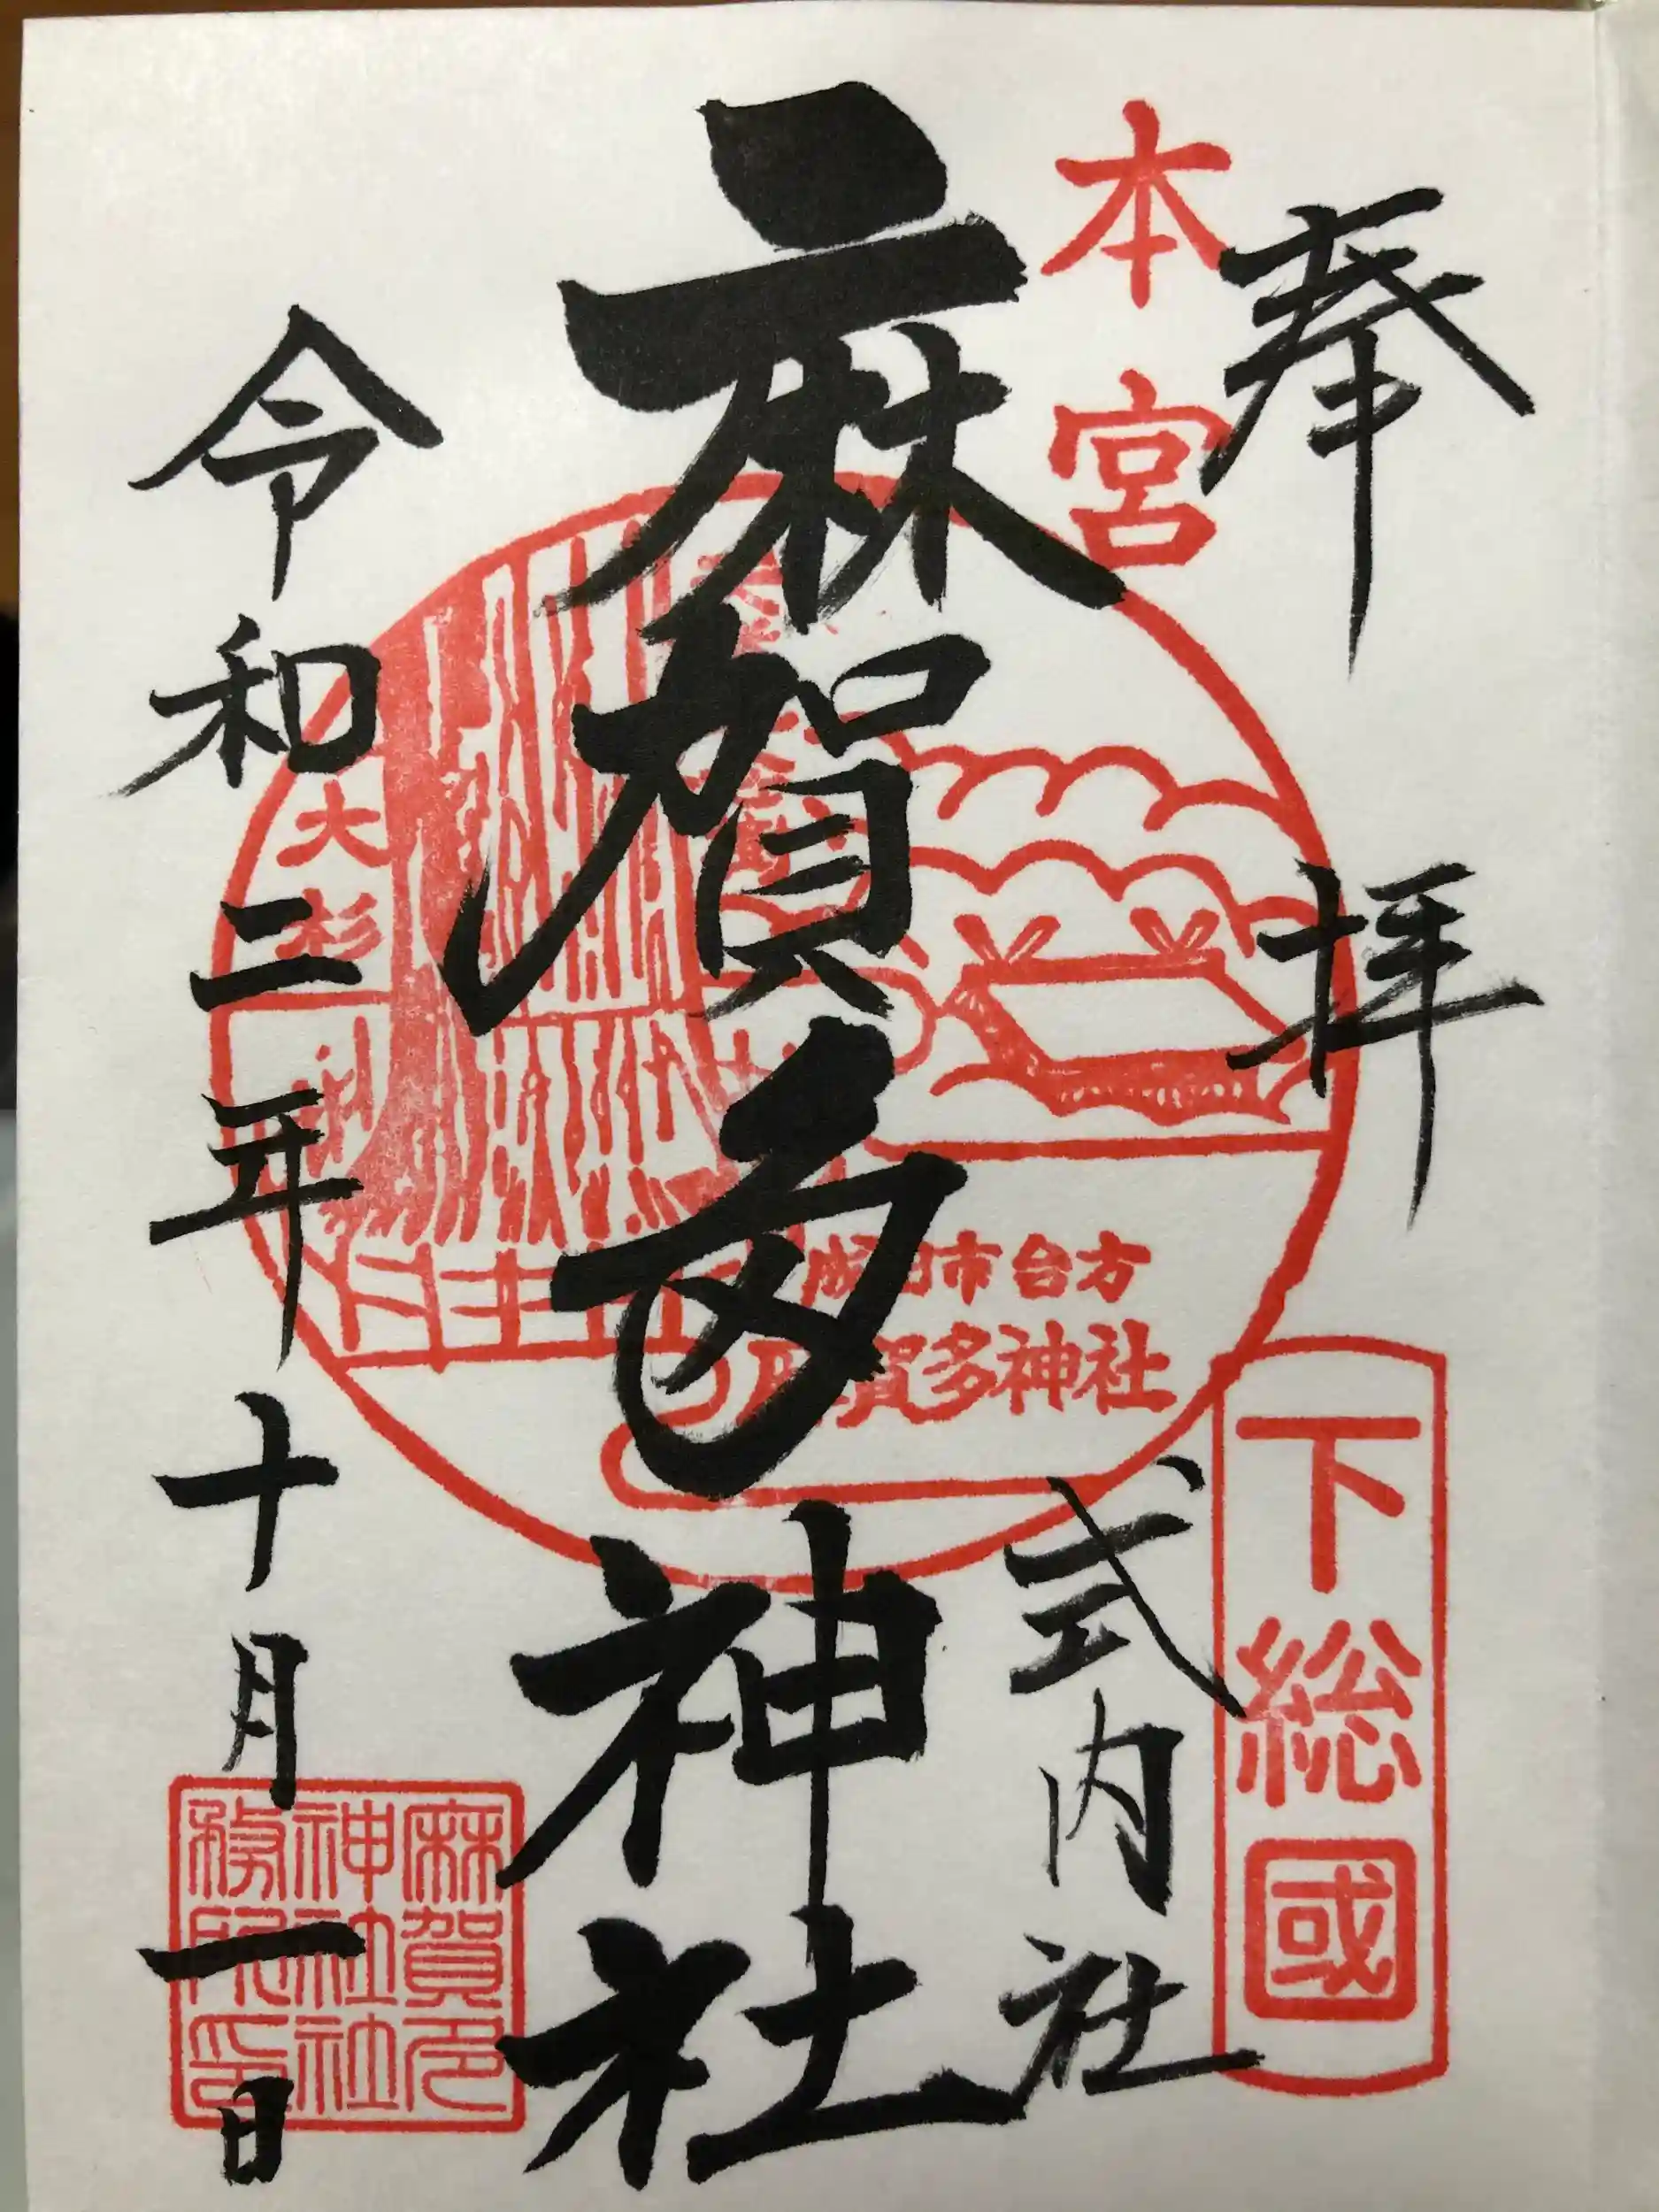 奉拝
本宮
下総國
式内社
麻賀多神社
大杉
成田市台方
麻賀多神社
令和二年十月一日
麻賀多
神社社
務所印